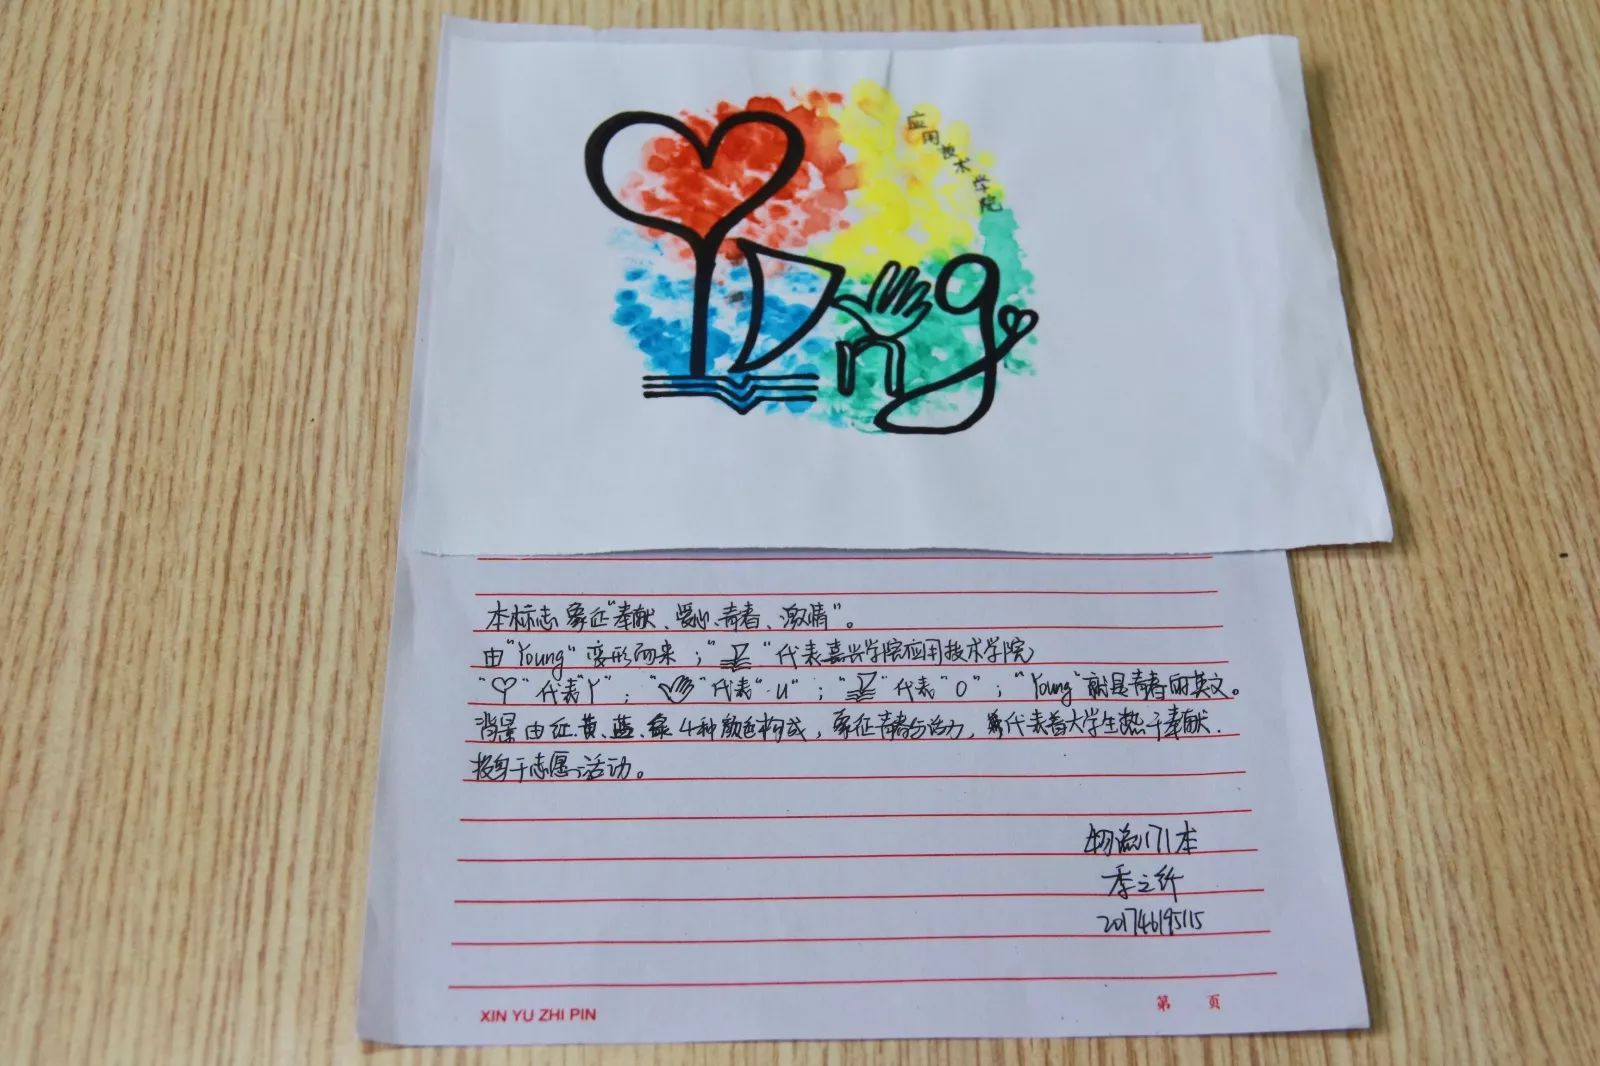 应用技术学院
Young
本标志象征"奉献、爱心、青春、激情"。
由"Young"变形而来;" "代表嘉兴学院应用技术学院
" "代表"Y";" "代表"u";" "代表"O";"Young"就是青春的英文。
背景由红、黄、蓝、绿4种颜色构成,象征青春与活力,代表着大学生热于奉献.
投身于志愿活动。
物流171本
季之纤
201746195115
XIN YU ZHI PIN 第 页